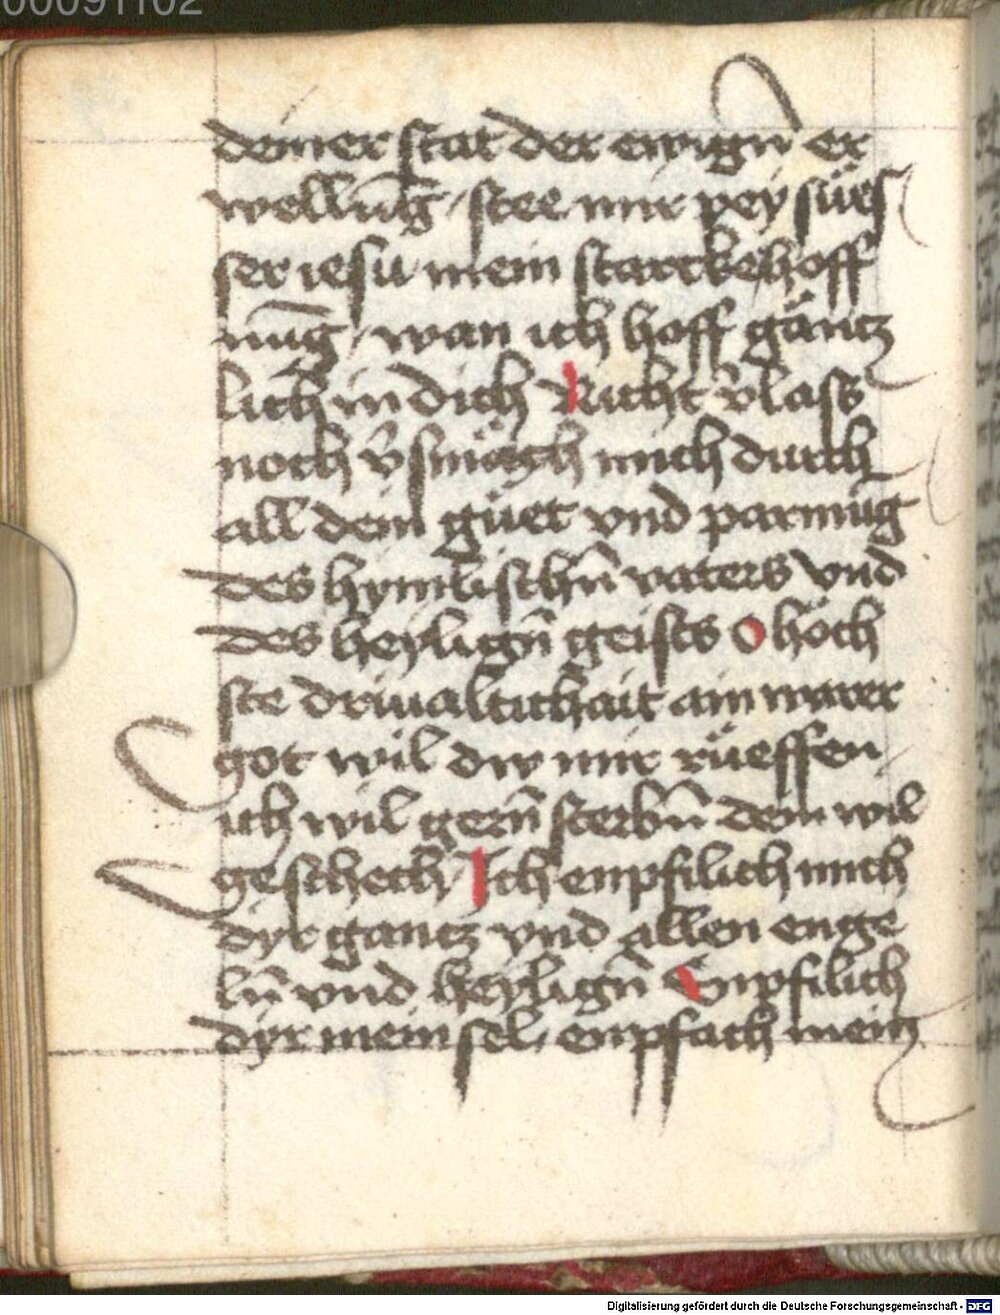 00091102
deiner stat der ewigñ er
wellūg / stee mir pey sües
ser iesu mein starcke hoff
nūg / wan ich hoff gäntz
lich in dich Nicht v̄lass
noch v̄smäch mich durch
all dein güet vnd parmūg
des hymlischñ vaters vnd
des heyligñ geists O höch
ste driualtichait ain warer
got wil dw mir rüeffen
ich wil gerñ sterbñ dein wil
geschech Ich enpfilich mich
dyr gantz vnd allen enge
lñ vnd heyligñ Enpfilich
dyr mein sel / enpfach mein
Digitalisierung gefördert durch die Deutsche Forschungsgemeinschaft - DFG